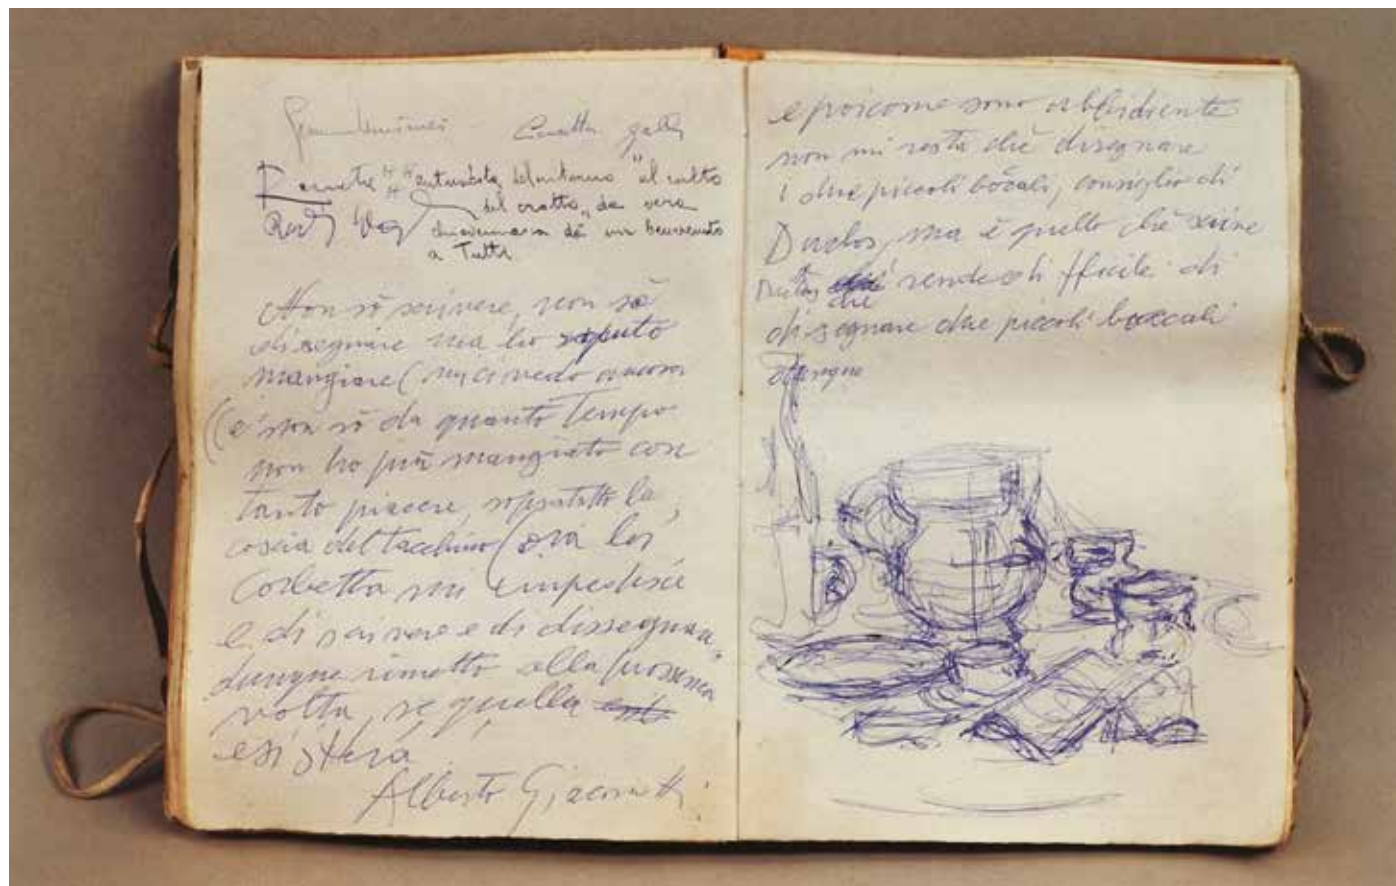 del crotto, da vera
chiavennasca dà un benvenuto
a Tutti
Non sò scrivere, non sò
disegnare ma ho saputo
mangiare (mi ci vedo ancora
(e non sò da quanto Tempo
non ho più mangiato con
tanto piacere, sopratutto la
coscia del tacchino (ora la
Corbetta mi impedisce
e di scrivere e di dissegnare,
dunque rimetto alla prossima
volta, se quella
esisterà
Alberto Giacometti
e poi come sono obbidiente
non mi resta che disegnare
i due piccoli boccali, consiglio di
Duclos, ma è quello che
che rende di fficile di
disegnare due piccoli boccali
dunque